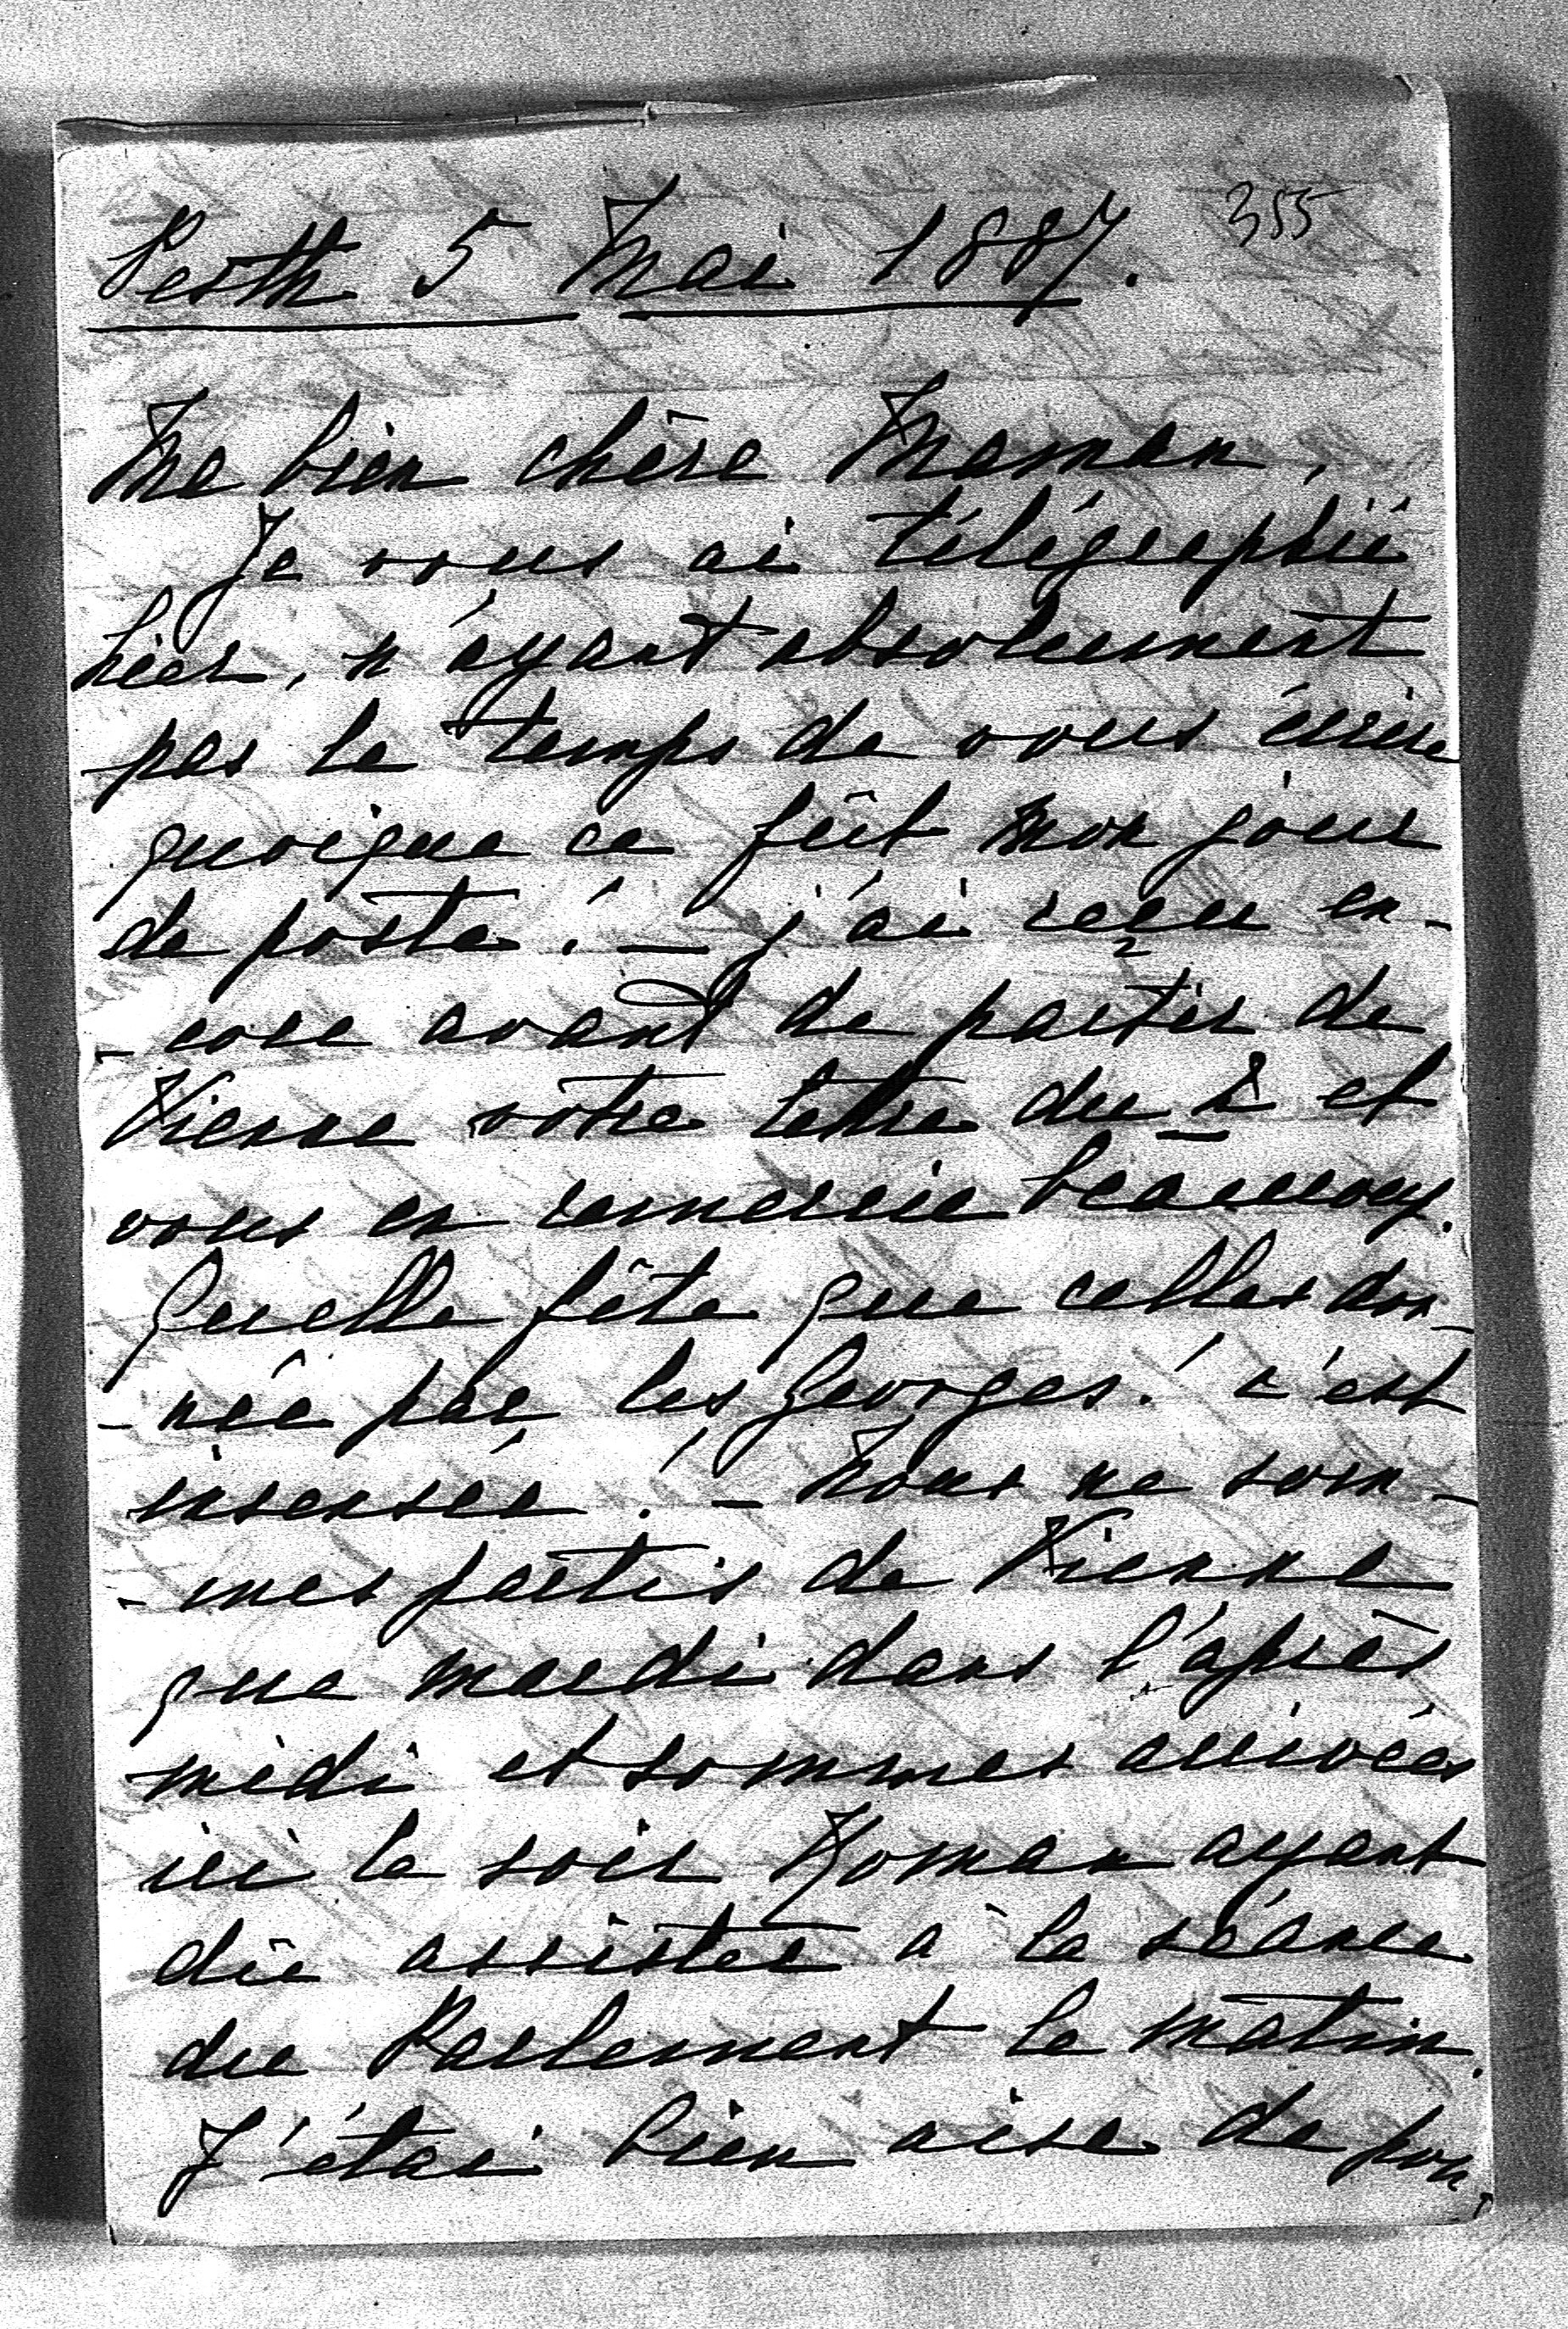 Pesth 5 Mai 1887. 355
Ma bien chère Maman,
Je vous ai télégraphié
hier, n'ayant absolument
pas le temps de vous écrire
quoique ce fût mon jour
de poste! — j'ai reçu en-
-core avant de partir de
Vienne votre lettre du 2 et
vous en remercie beaucoup.
Quelle fête que celles don-
-née par les Georges! c'est
insensée! — Nous ne som-
-mes partis de Vienne
que mardi dans l'après
midi et sommes arrivées
ici le soir Roman ayant
dû assister à la séance
du Parlement le matin.
J'étai bien aise de pou-